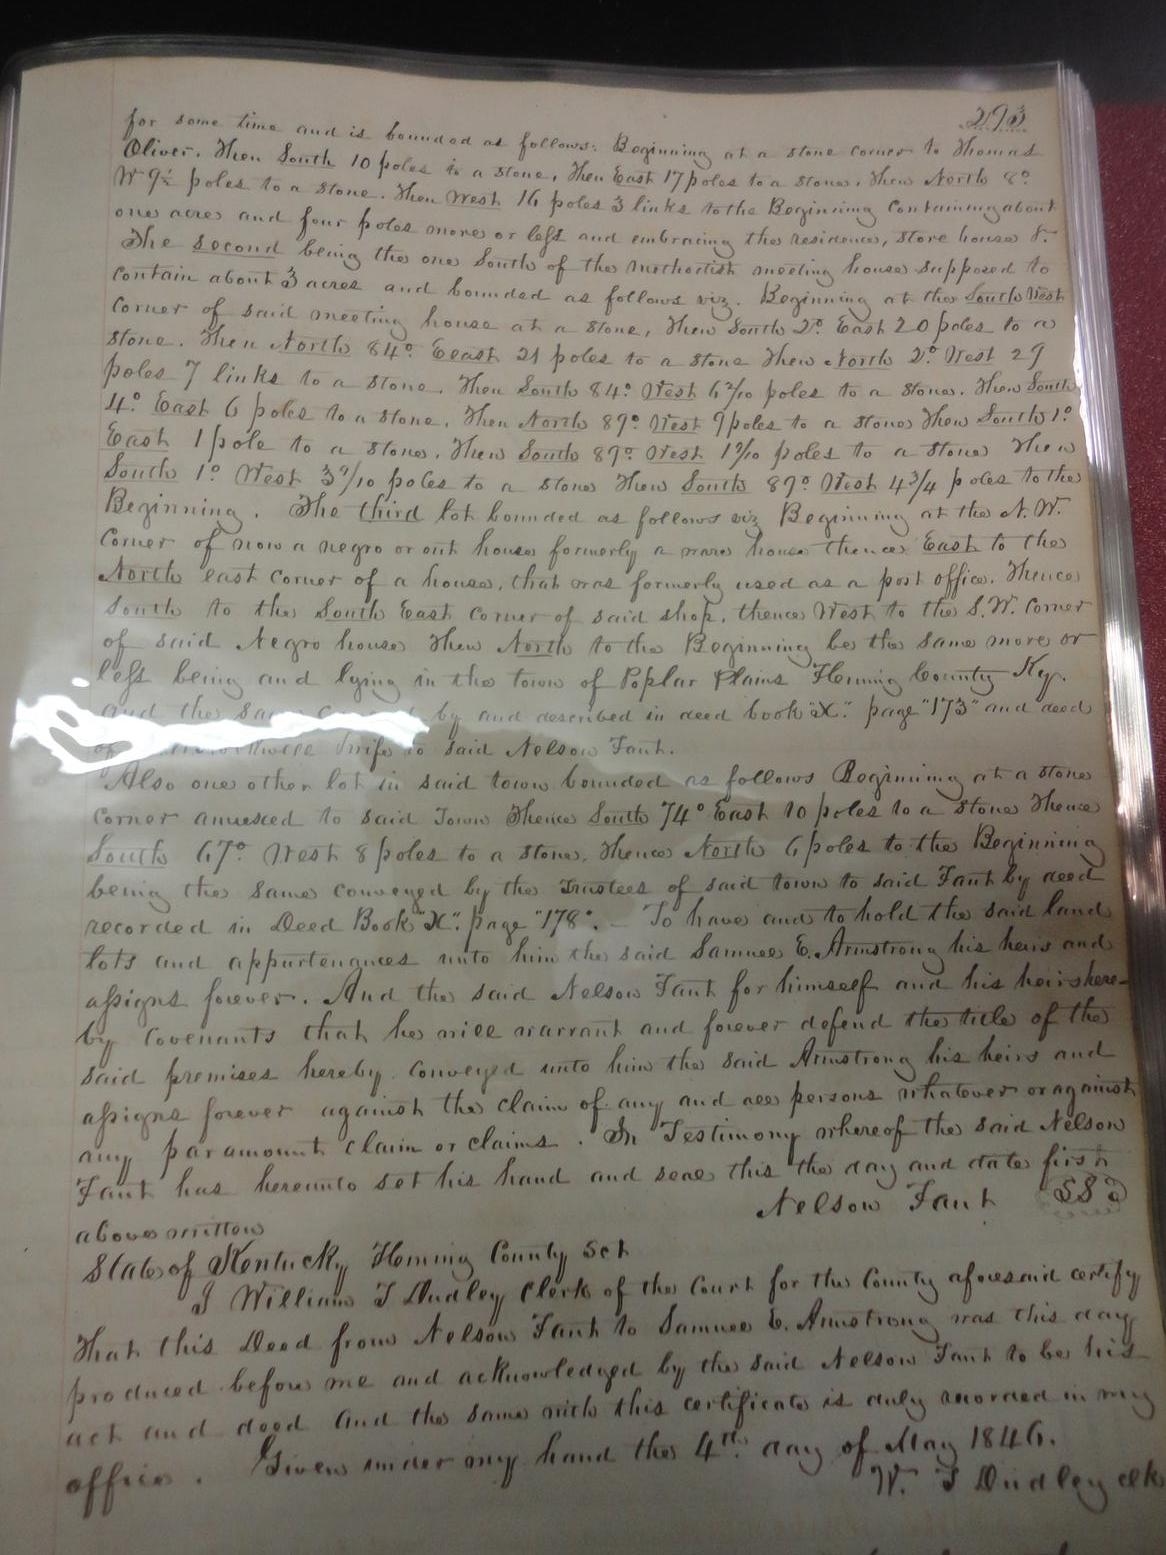 293
for some time and is bounded as follows: Beginning at a stone corner to Thomas
Oliver. Then South 10 poles to a stone, Then East 17 poles to a stone, Then North 8°
W 9½ poles to a stone. Then West 16 poles 3 links to the Beginning Containing about
one acre and four poles more or less and embracing the residence, store house &.
The second being the one South of the methodist meeting house supposed to
contain about 3 acres and bounded as follows viz. Beginning at the South West
corner of said meeting house at a stone, Then South 2° East 20 poles to a
stone. Then North 84° East 21 poles to a stone Then North 2° West 29
poles 7 links to a stone. Then South 84° West 6 2/10 poles to a stone. Then South
4° East 6 poles to a stone, Then North 89° West 9 poles to a stone Then South 1°
East 1 pole to a stone, Then South 89° West poles to a stone Then
South 1° West poles to a stone Then South 89° West 4 3/4 poles to the
Beginning. The third lot bounded as follows viz Beginning at the N. W.
Corner of now a negro or out house formerly a ware house thence East to the
North east corner of a house, that was formerly used as a post office. Thence
South to the South East corner of said shop, thence West to the S.W. Corner
of said Negro house Then North to the Beginning be the same more or
less being and lying in the town of Poplar Plains Fleming County Ky.
and the same by and described in deed book "X". page "173" and deed
of wife to said Nelson Fant.
Also one other lot in said town bounded as follows Beginning at a stone
corner annexed to said Town Thence South 74° East 10 poles to a stone Thence
South 67° West 8 poles to a stone. Thence North 6 poles to the Beginning
being the same conveyed by the Trustees of said town to said Fant by deed
recorded in Deed Book "X". page "178". — To have and to hold the said land
lots and appurtenances unto him the said Samuel E. Armstrong his heirs and
assigns forever. And the said Nelson Fant for himself and his heirs here-
by Covenants that he will warrant and forever defend the title of the
said premises hereby conveyed unto him the said Armstrong his heirs and
assigns forever against the claim of any and all persons whatever or against
any paramount claim or claims. In Testimony whereof the said Nelson
Fant has hereunto set his hand and seal this the day and date first
above written
Nelson Fant
State of Kentucky Fleming County Sct
I William T Dudley Clerk of the Court for the County aforesaid certify
That this Deed from Nelson Fant to Samuel E. Armstrong was this day
produced before me and acknowledged by the said Nelson Fant to be his
act and deed and the same with this certificate is duly recorded in my
office. Given under my hand the 4th day of May 1846.
W. T Dudley clk